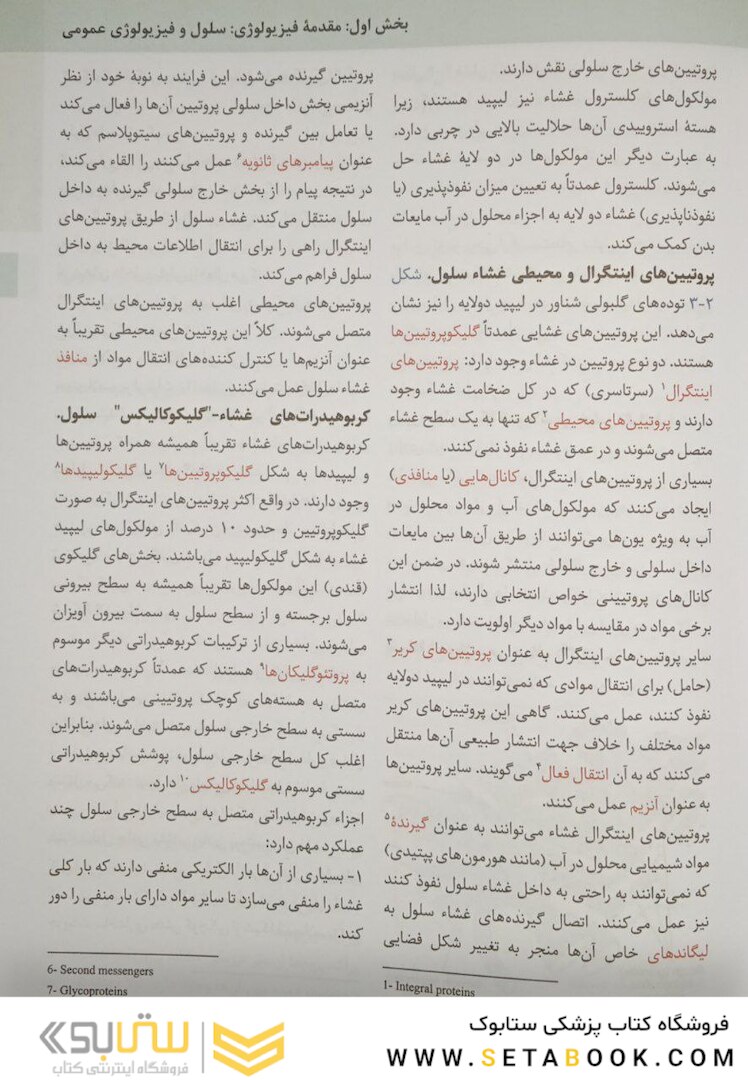 بخش اول: مقدمهٔ فیزیولوژی: سلول و فیزیولوژی عمومی
پروتیین‌های خارج سلولی نقش دارند.
مولکول‌های کلسترول غشاء نیز لیپید هستند، زیرا
هستهٔ استروییدی آن‌ها حلالیت بالایی در چربی دارد.
به عبارت دیگر این مولکول‌ها در دو لایهٔ غشاء حل
می‌شوند. کلسترول عمدتاً به تعیین میزان نفوذپذیری (یا
نفوذناپذیری) غشاء دو لایه به اجزاء محلول در آب مایعات
بدن کمک می‌کند.
پروتیین‌های اینتگرال و محیطی غشاء سلول. شکل
۲-۳ توده‌های گلبولی شناور در لیپید دولایه را نیز نشان
می‌دهد. این پروتیین‌های غشایی عمدتاً گلیکوپروتیین‌ها
هستند. دو نوع پروتیین در غشاء وجود دارد: پروتیین‌های
اینتگرال۱ (سرتاسری) که در کل ضخامت غشاء وجود
دارند و پروتیین‌های محیطی۲ که تنها به یک سطح غشاء
متصل می‌شوند و در عمق غشاء نفوذ نمی‌کنند.
بسیاری از پروتیین‌های اینتگرال، کانال‌هایی (یا منافذی)
ایجاد می‌کنند که مولکول‌های آب و مواد محلول در
آب به ویژه یون‌ها می‌توانند از طریق آن‌ها بین مایعات
داخل سلولی و خارج سلولی منتشر شوند. در ضمن این
کانال‌های پروتیینی خواص انتخابی دارند، لذا انتشار
برخی مواد در مقایسه با مواد دیگر اولویت دارد.
سایر پروتیین‌های اینتگرال به عنوان پروتیین‌های کریر۳
(حامل) برای انتقال موادی که نمی‌توانند در لیپید دولایه
نفوذ کنند، عمل می‌کنند. گاهی این پروتیین‌های کریر
مواد مختلف را خلاف جهت انتشار طبیعی آن‌ها منتقل
می‌کنند که به آن انتقال فعال۴ می‌گویند. سایر پروتیین‌ها
به عنوان آنزیم عمل می‌کنند.
پروتیین‌های اینتگرال غشاء می‌توانند به عنوان گیرندهٔ۵
مواد شیمیایی محلول در آب (مانند هورمون‌های پپتیدی)
که نمی‌توانند به راحتی به داخل غشاء سلول نفوذ کنند
نیز عمل می‌کنند. اتصال گیرنده‌های غشاء سلول به
لیگاندهای خاص آن‌ها منجر به تغییر شکل فضایی
1- Integral proteins
پروتیین گیرنده می‌شود. این فرایند به نوبهٔ خود از نظر
آنزیمی بخش داخل سلولی پروتیین آن‌ها را فعال می‌کند
یا تعامل بین گیرنده و پروتیین‌های سیتوپلاسم که به
عنوان پیامبرهای ثانویه۶ عمل می‌کنند را القاء می‌کند،
در نتیجه پیام را از بخش خارج سلولی گیرنده به داخل
سلول منتقل می‌کند. غشاء سلول از طریق پروتیین‌های
اینتگرال راهی را برای انتقال اطلاعات محیط به داخل
سلول فراهم می‌کند.
پروتیین‌های محیطی اغلب به پروتیین‌های اینتگرال
متصل می‌شوند. کلاً این پروتیین‌های محیطی تقریباً به
عنوان آنزیم‌ها یا کنترل کننده‌های انتقال مواد از منافذ
غشاء سلول عمل می‌کنند.
کربوهیدرات‌های غشاء-"گلیکوکالیکس" سلول.
کربوهیدرات‌های غشاء تقریباً همیشه همراه پروتیین‌ها
و لیپیدها به شکل گلیکوپروتیین‌ها۷ یا گلیکولیپیدها۸
وجود دارند. در واقع اکثر پروتیین‌های اینتگرال به صورت
گلیکوپروتیین و حدود ۱۰ درصد از مولکول‌های لیپید
غشاء به شکل گلیکولیپید می‌باشند. بخش‌های گلیکوی
(قندی) این مولکول‌ها تقریباً همیشه به سطح بیرونی
سلول برجسته و از سطح سلول به سمت بیرون آویزان
می‌شوند. بسیاری از ترکیبات کربوهیدراتی دیگر موسوم
به پروتئوگلیکان‌ها۹ هستند که عمدتاً کربوهیدرات‌های
متصل به هسته‌های کوچک پروتیینی می‌باشند و به
سستی به سطح خارجی سلول متصل می‌شوند. بنابراین
اغلب کل سطح خارجی سلول، پوشش کربوهیدراتی
سستی موسوم به گلیکوکالیکس۱۰ دارد.
اجزاء کربوهیدراتی متصل به سطح خارجی سلول چند
عملکرد مهم دارد:
۱- بسیاری از آن‌ها بار الکتریکی منفی دارند که بار کلی
غشاء را منفی می‌سازد تا سایر مواد دارای بار منفی را دور
کند.
6- Second messengers
7- Glycoproteins
فروشگاه کتاب پزشکی ستابوک
WWW.SETABOOK.COM
ستابوک
فروشگاه اینترنتی کتاب